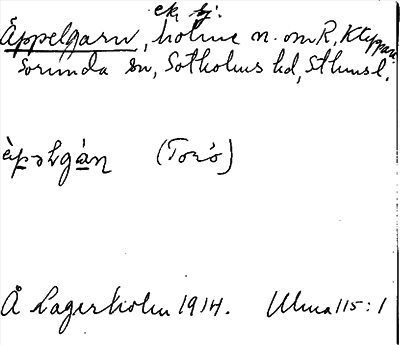 ek. bj.
Äppelgarn, holme n. om R, Kteppan
Sorunda sn, Sotholms hd, Sthmsl.
(Torö)
Å Lagerholm 1914. Ulma 115:1